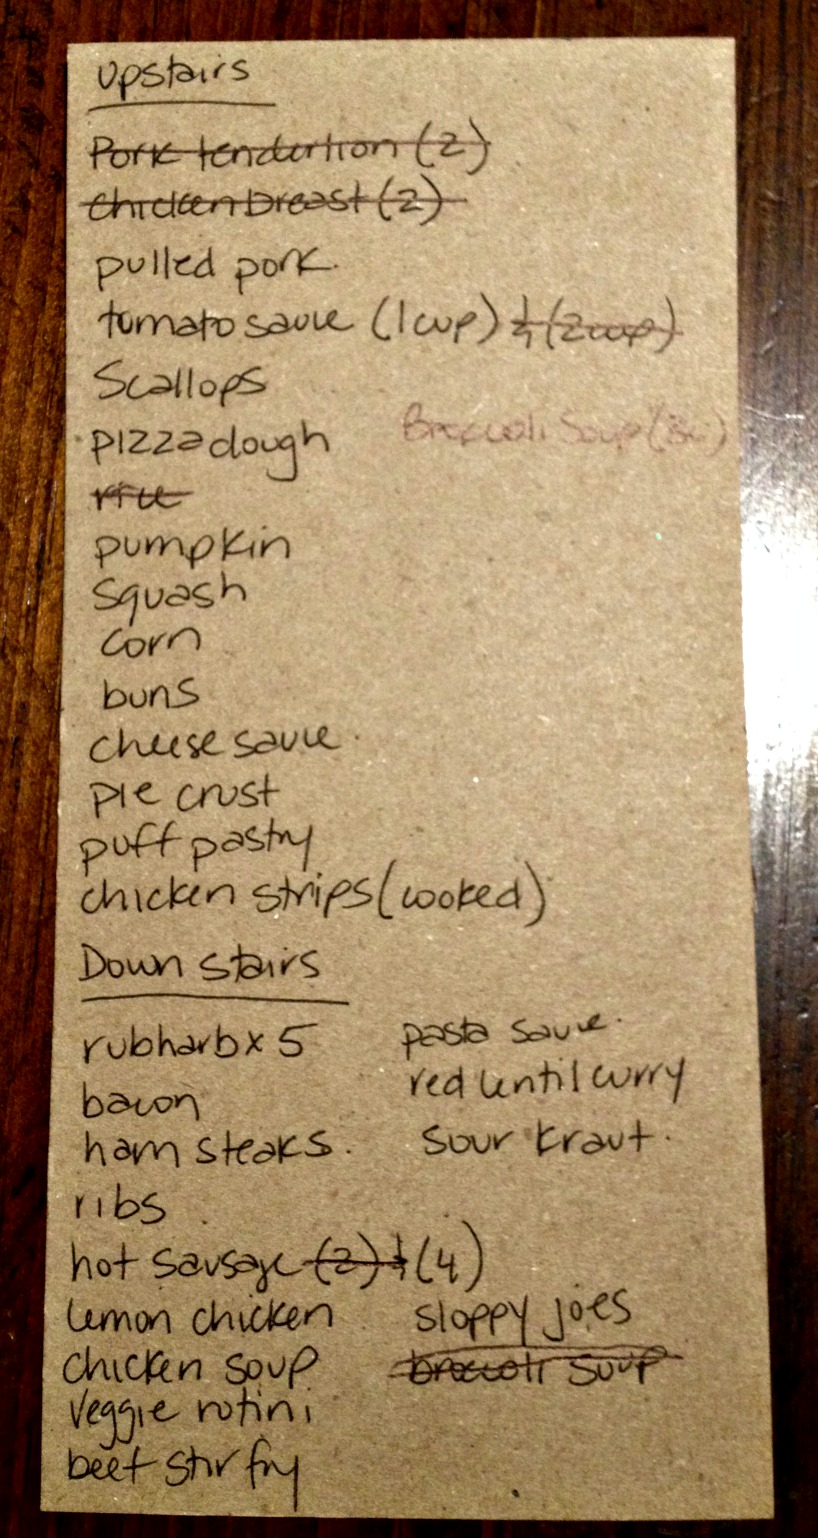 Upstairs
Pork tenderlion (2)
chicken breast (2)
pulled pork.
tomato sauce (1 cup) + (2 cup)
Scallops
pizza dough
Broccoli Soup
rice
pumpkin
Squash
corn
buns
cheese sauce.
pie crust
puff pastry
chicken strips (cooked)
Down stairs
rubharb x 5
pasta sauce.
bacon
red lentil curry
ham steaks.
Sour Kraut.
ribs
hot sausage (2) + (4)
lemon chicken
sloppy joes
chicken soup
broccoli soup
Veggie rotini
beef stir fry